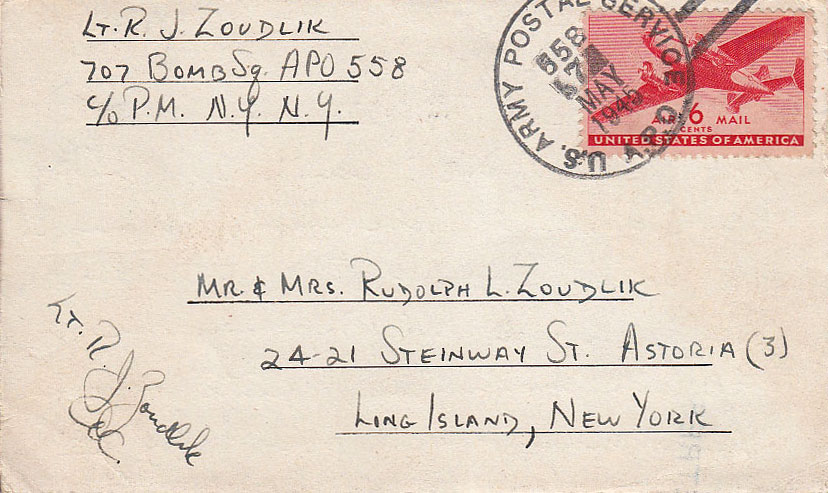 LT. R. J. ZOUDLIK
707 BOMB SQ. APO 558
C/O P.M. N.Y. N.Y.
U.S. ARMY POSTAL SERVICE A.P.O.
558
MAY
1945
AIR 6 MAIL
CENTS
UNITED STATES OF AMERICA
MR. & MRS. RUDOLPH L. ZOUDLIK
24-21 STEINWAY ST. ASTORIA (3)
LONG ISLAND, NEW YORK
Lt. R. J. Zoudlik